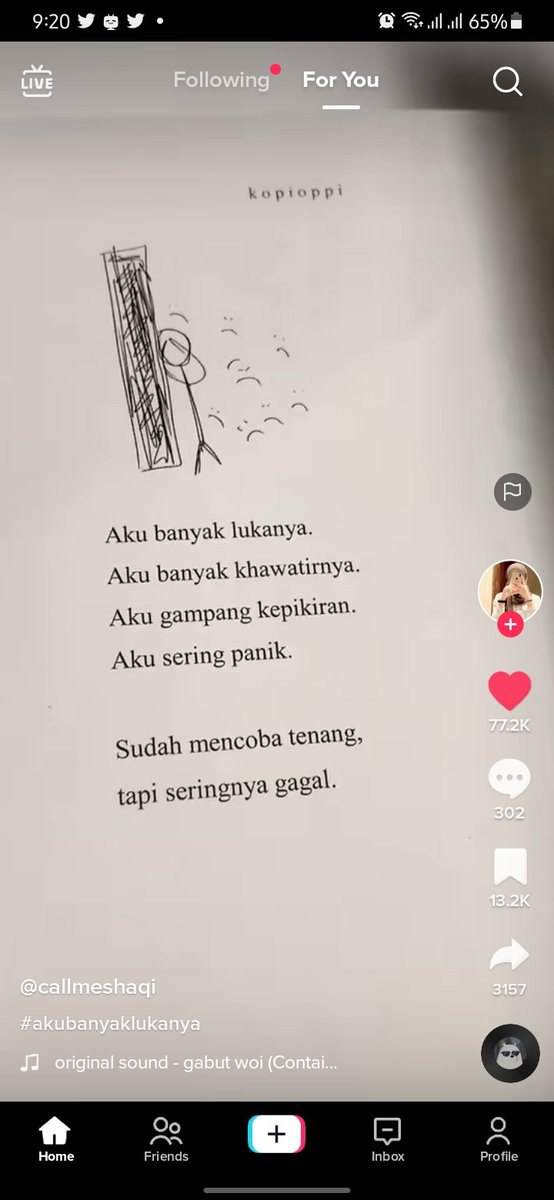 9:20
65%
LIVE
Following
For You
kopioppi
Aku banyak lukanya.
Aku banyak khawatirnya.
Aku gampang kepikiran.
Aku sering panik.
Sudah mencoba tenang,
tapi seringnya gagal.
77.2K
302
13.2K
3157
@callmeshaqi
#akubanyaklukanya
original sound - gabut woi (Contai...
Home
Friends
Inbox
Profile